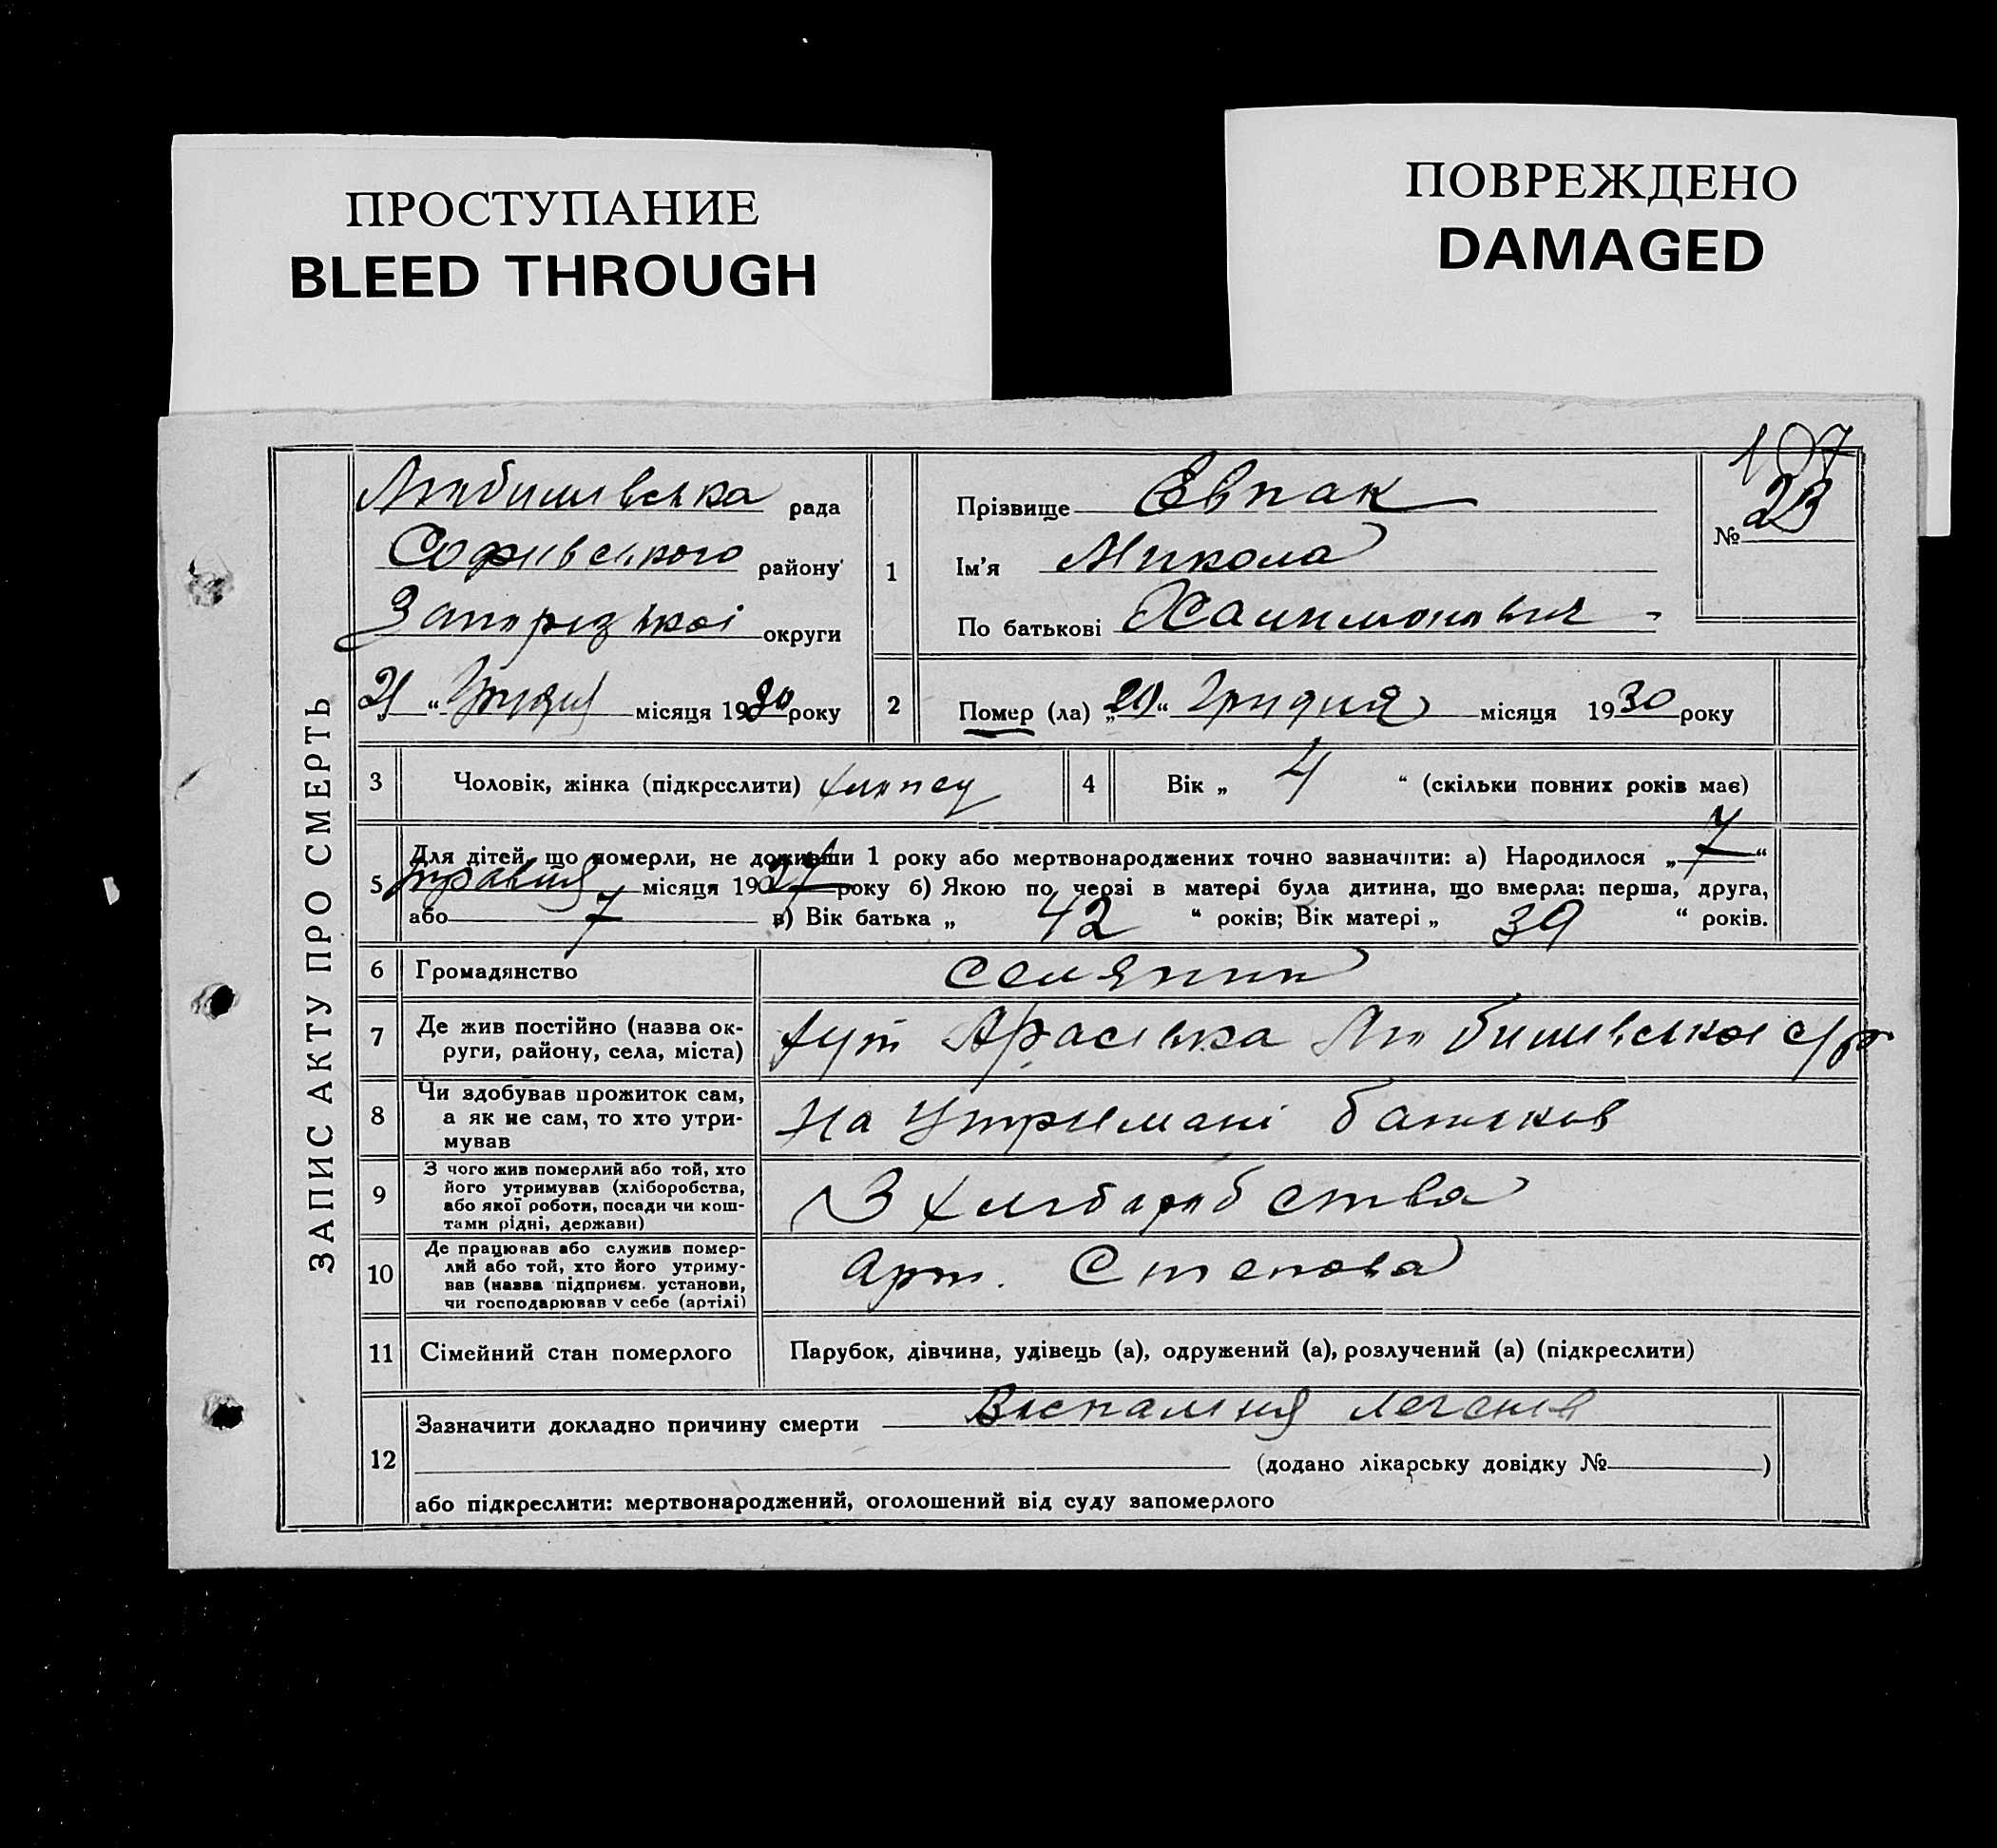 ПРОСТУПАНИЕ
BLEED THROUGH
ПОВРЕЖДЕНО
DAMAGED
ЗАПИС АКТУ ПРО СМЕРТЬ
Любимівська рада
Софіівського району
Запорізькоі округи
21 " Грудня місяця 1930 року
107
№ 23
1 Прізвище Євпак
Ім'я Микола
По батькові
2 Помер (ла) „20" Грудня місяця 1930 року
3 Чоловік, жінка (підкреслити) хлопец
4 Вік „ 4 " (скільки повних років має)
5 Для дітей, що померли, не доживши 1 року або мертвонароджених точно зазначити: а) Народилося „ 7 "
травня місяця 1927 року б) Якою по черзі в матері була дитина, що вмерла: перша, друга,
або 7 в) Вік батька „ 42 " років; Вік матері „ 39 " років.
6 Громадянство селянин
7 Де жив постійно (назва округи, району, села, міста) хут Любимівськоі с/р
8 Чи здобував прожиток сам,
а як не сам, то хто утри-
мував На Утримані батьків
9 З чого жив померлий або той, хто
його утримував (хліборобства,
або якої роботи, посади чи кош-
тами рідні, держави) З хліборобства
10 Де працював або служив помер-
лий або той, хто його утриму-
вав (назва підприєм. установи,
чи господарював у себе (артілі) Арт. Степова
11 Сімейний стан померлого Парубок, дівчина, удівець (а), одружений (а), розлучений (а) (підкреслити)
12 Зазначити докладно причину смерти Воспаління легенів
(додано лікарську довідку № )
або підкреслити: мертвонароджений, оголошений від суду запомерлого